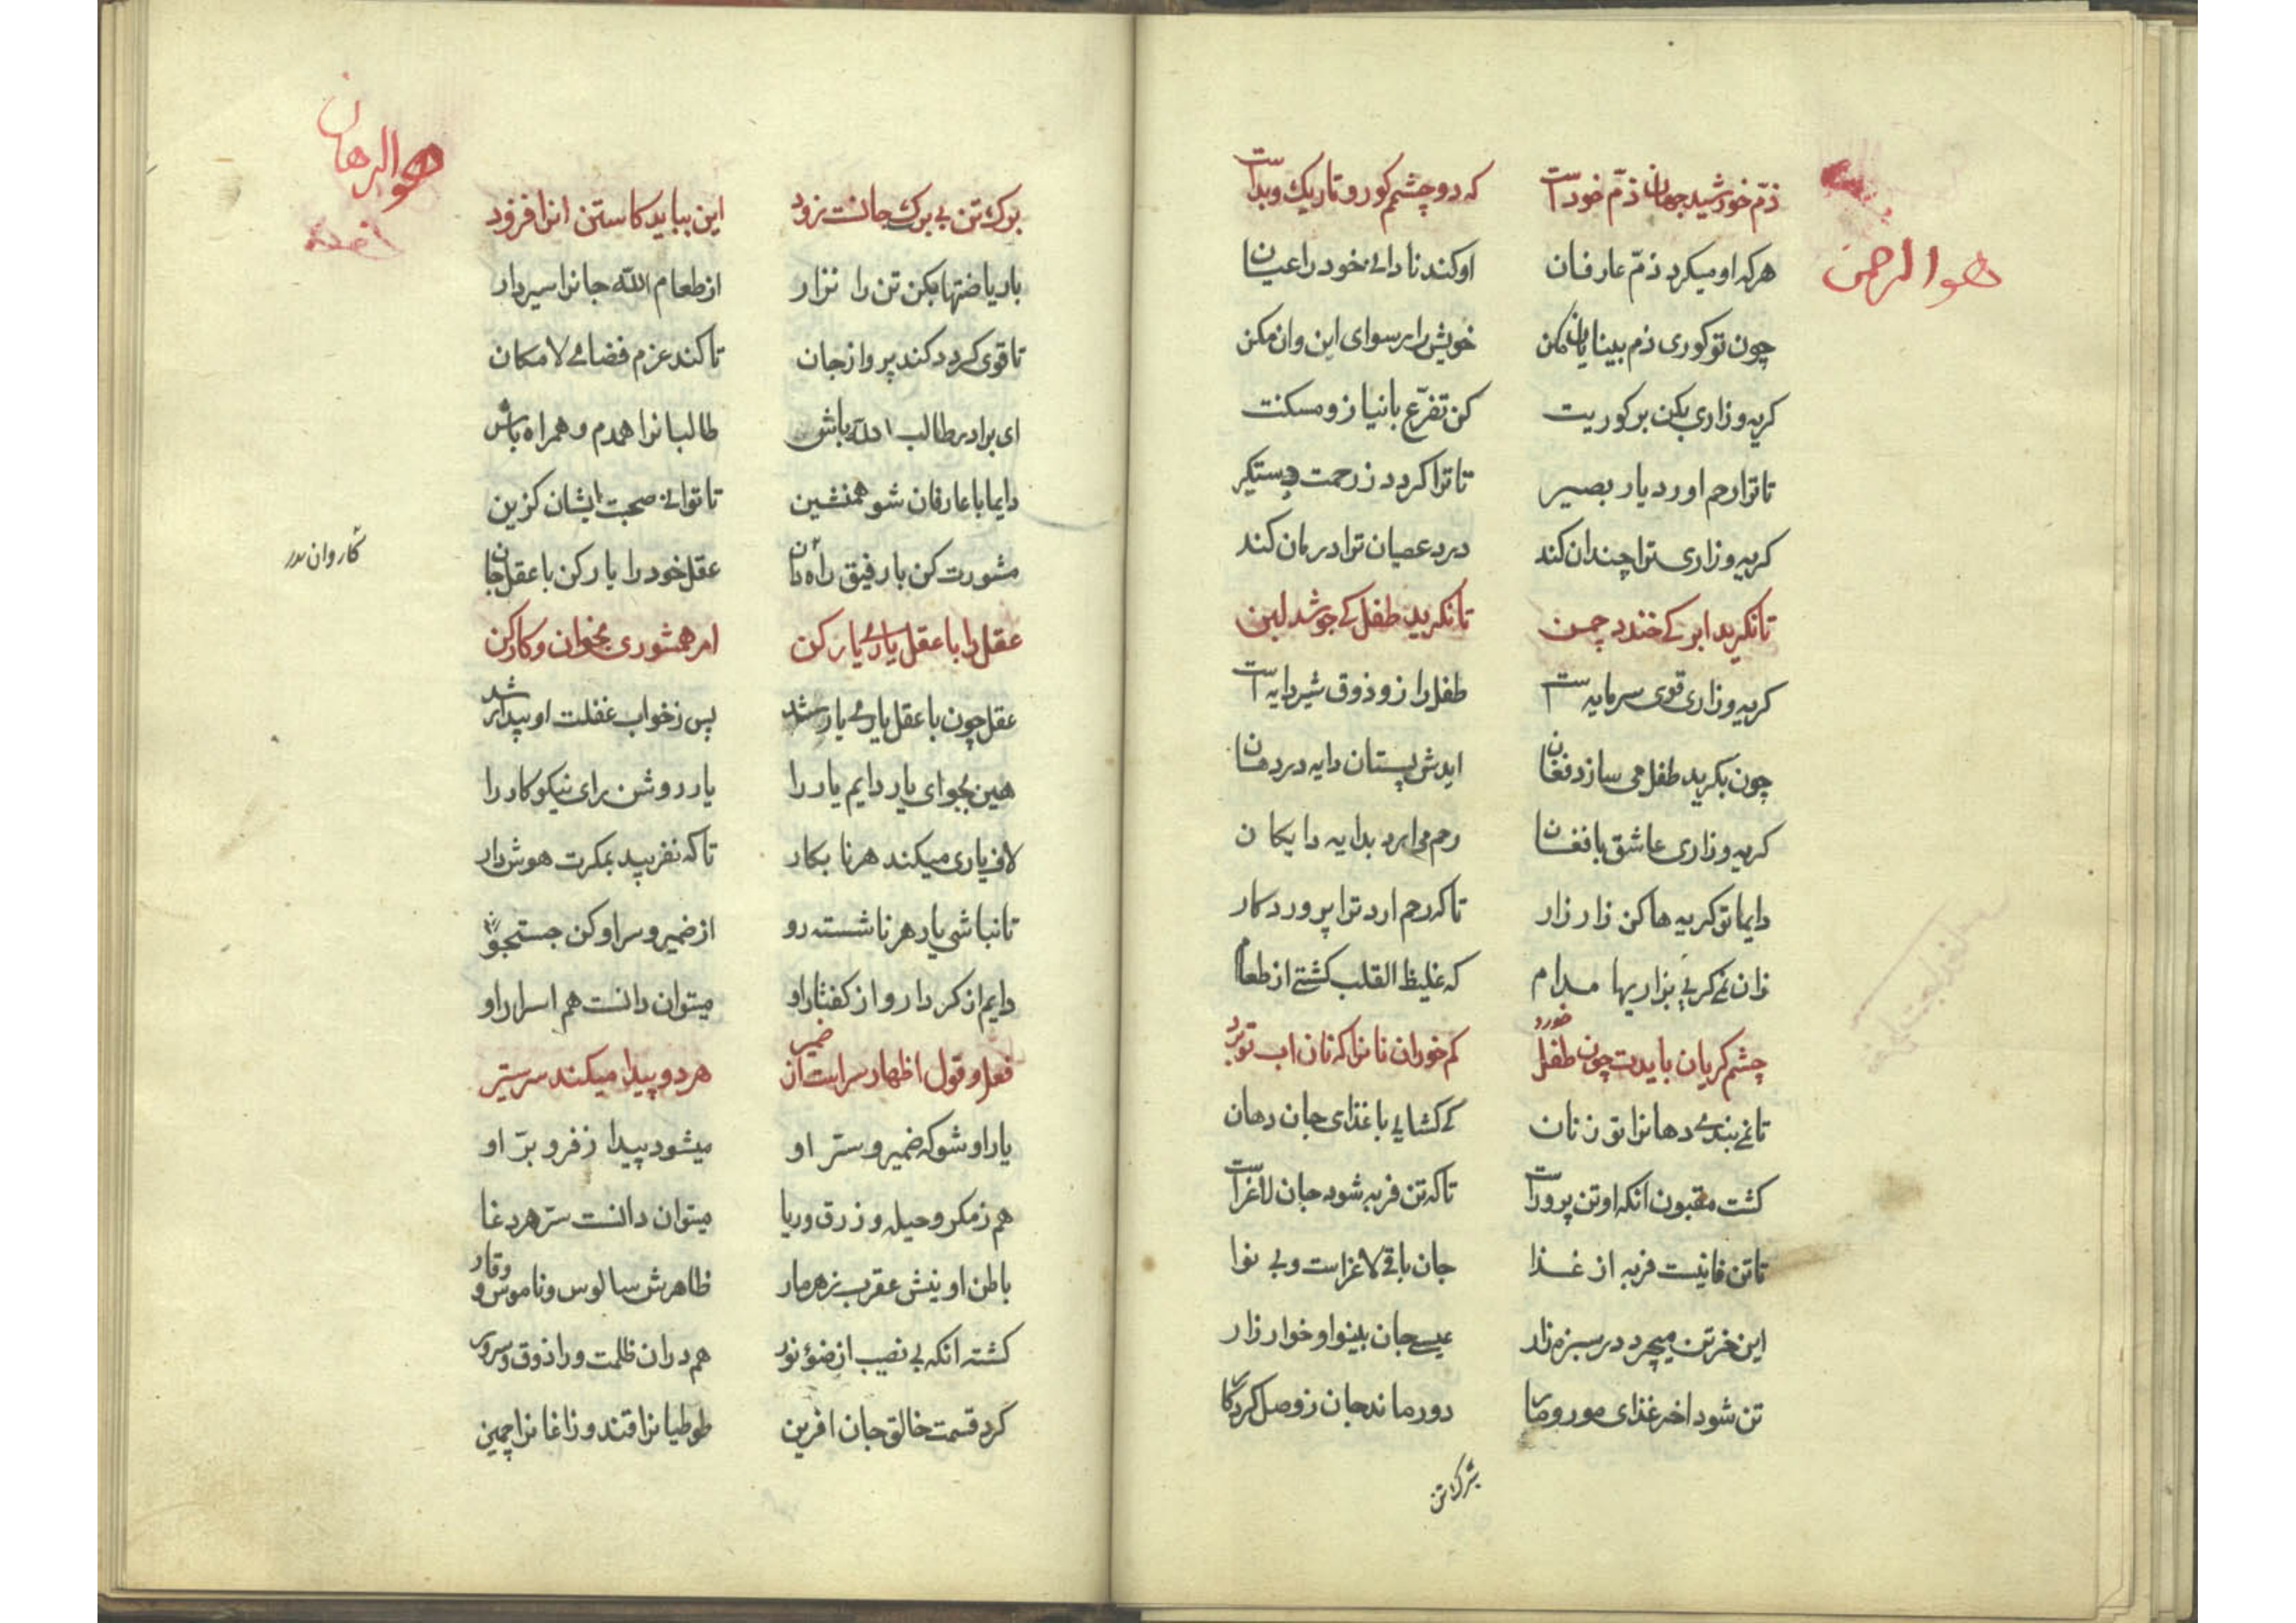 هوالرحمن
ذمّ خورشید جهان ذمّ خودا ست که دو چشمم کور و تاریک و بدا ست
هرکه او میکرد ذمّ عارفان او کند نادانئ خود را عیان
چون تو کوری ذم بینایان مکن خویش را رسوای این وان مکن
کریه وزاری بکن بر کوریت کن تضرّع بانیاز ومسکنت
تا ترا رحم اورد یار بصیر تا ترا کردد زرحمت دستکیر
کریه وزاری ترا چندان کند درد عصیان ترا درمان کند
تا نکرید ابر کے خندد چمن تا نکرید طفل کے جوشد لبن
کریه وزاری قوی سرمایه است طفل را زو ذوق شیر دایه است
چون بکرید طفل می سازد فغان ایدش پستان دایه در دهان
کریه وزاری عاشق با فغان رحم می ارد بدایه دایکان
دایما تو کریه ها کن زار زار تا که رحم ارد ترا پروردکار
زان نمے کریی بزاریها مدام که غلیظ القلب کشتے از طعام
چشم کریان بایدت چون طفل خورد کم خور ان نانرا که نان اب تو برد
تا نمے بندے دهانرا تو زنان کے کشایے با غذای جان دهان
کشت مقبون انکه او تن پرورا ست تا که تن فربه شود جان لاغرا ست
تا تن فانیست فربه از غذا جان باقے لاغراست وبی نوا
این خر تن میچرد در سبزه زار عیسے جان بینوا و خوار زار
تن شود اخر غذای مور ومار دور ماند جان زوصل کردکار
برک تن
هوالرهان
برک تن بی برک جانست زود این بباید کاستن انرا فزود
با ریاضتها بکن تن را نزار از طعام الله جانرا سیر دار
تا قوی کردد کند پرواز جان تا کند عزم فضائے لامکان
ای برادر طالب الله باش طالبانرا همدم و همراه باش
دایما با عارفان شو همنشین تا توانے صحبت ایشان کزین
مشورت کن با رفیق راه دان عقل خود را یار کن با عقل جان
کاروان
عقل را با عقل یارے یار کن امرهم شوری بخوان و کار کن
عقل چون با عقل یارے یار شد پس زخواب غفلت او بیدار شد
هین بجو ای یار دایم یار را یار روشن رای نیکو کار را
لاف یاری میکند هر نا بکار تا که نفریبد بمکرت هوش دار
تا نباشی یار هر ناشسته رو از ضمیر و سر او کن جستجو
دایم از کردار و از کفتار او میتوان دانست هم اسرار او
فعل و قول اظهار سراست ان ضمیر هر دو پیدا میکند سر ستیر
یار او شو که ضمیر و ستر او میشود پیدا زفر و برّ او
هم زمکر و حیله و زرق وریا میتوان دانست سرّ هر دغا
باطن او نیش عقرب زهر مار ظاهرش سالوس و ناموس و وقار
کشته انکه بی نصیب از ضؤ نور هم دران ظلمت ورا ذوق و سرور
کرد قسمت خالق جان افرین طوطیانرا قند و زاغانرا چمین